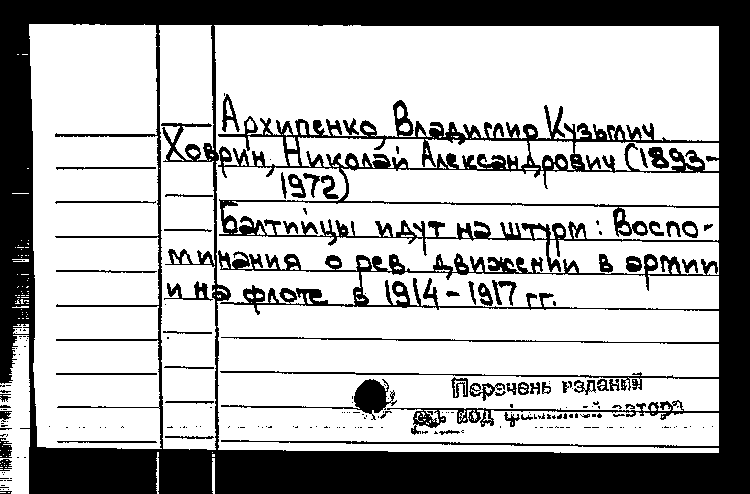 Архипенко, Владимир Кузьмич.
Ховрин, Николай Александрович (1893-
1972)
Балтийцы идут на штурм: Воспо-
минания о рев. движении в армии
и на флоте в 1914-1917 гг.
Перечень изданий
см. под фамилией автора